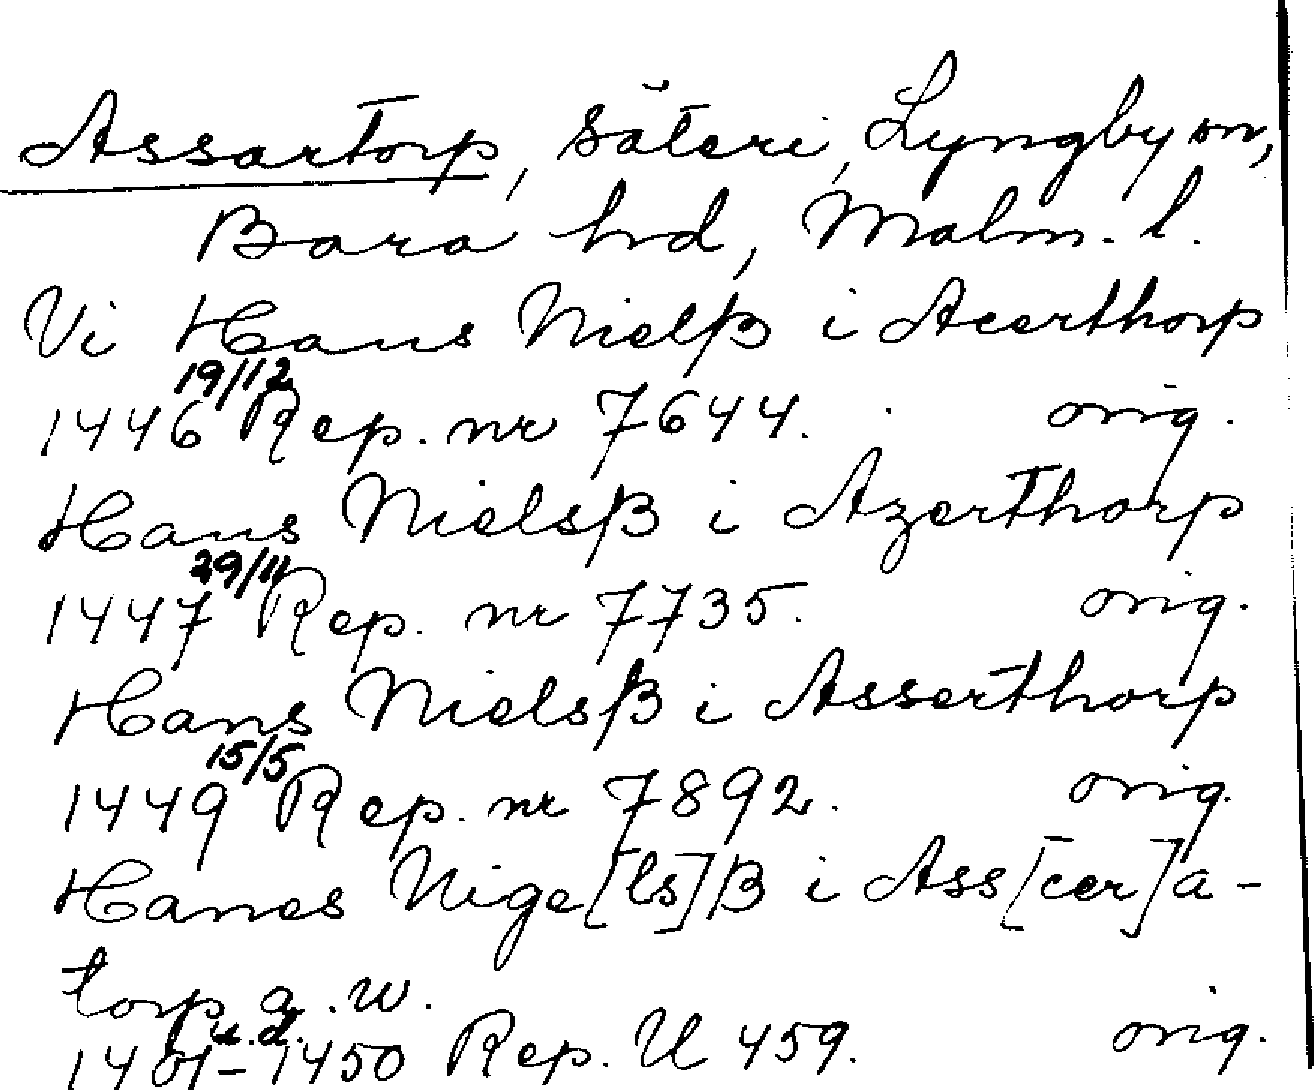 Assartorp, säteri, Lyngby sn,
Bara hrd, Malm. l.
Vi Hans Nielß i Acerthorp
1446 19/12 Rep. nr 7644. orig.
Hans Nielsß i Azerthorp
1447 29/11 Rep. nr 7735. orig.
Hans Nielsß i Asserthorp
1449 15/5 Rep. nr 7892. orig.
Hanes Nige[ls]ß i Ass[cer]a-
torp a. w.
1401-1450 u.d. Rep. U 459. orig.